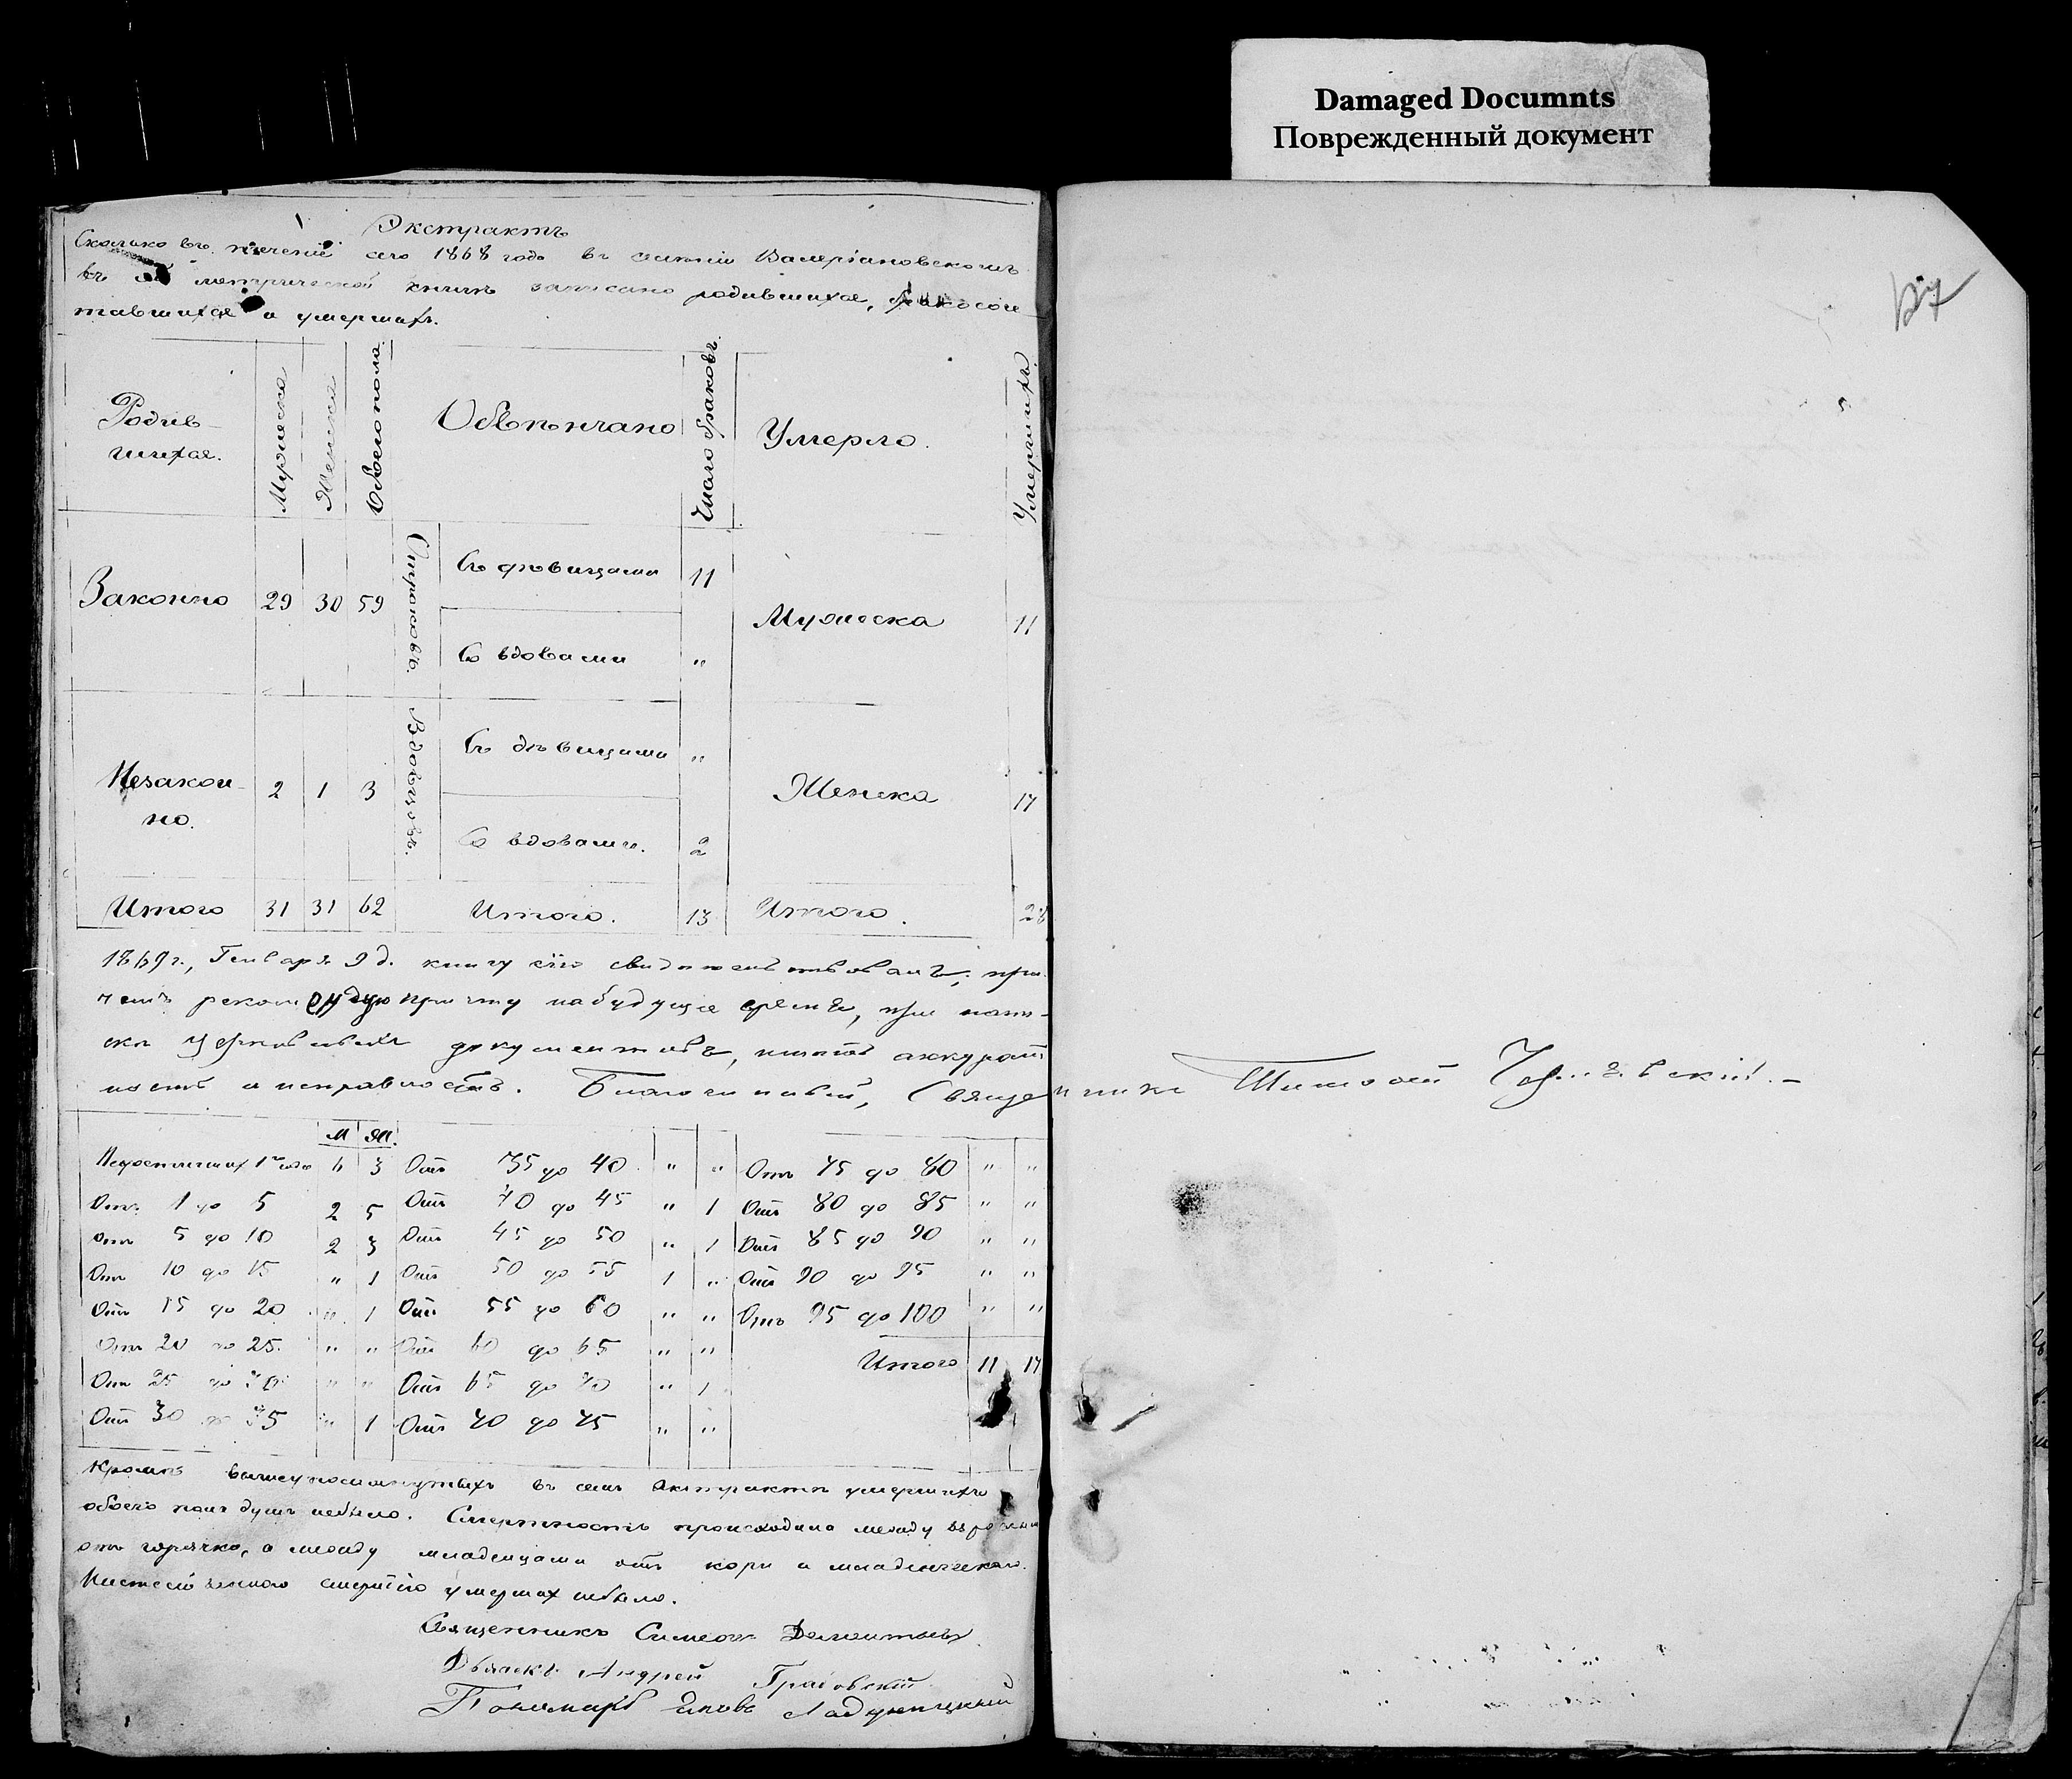 Damaged Documnts
Поврежденный документ
Экстрактъ
Сколько въ теченіе сего 1868 года въ селеніи Валеріановскомъ
въ метрической книгѣ записано родившихся, бракосоче-
тавшихся и умершихъ.
Родив-
шихся. Мужеска Женска Обоего пола. Обвѣнчано Число браковъ. Умерло. Умершихъ.
Законно 29 30 59 Отроковъ. Съ дѣвицами 11 Мужеска 11
Со вдовами "
Незакон-
но. 2 1 3 Вдовцовъ. Съ дѣвицами " Женска 17
Со вдовами. 2
Итого 31 31 62 Итого. 13 Итого. 28
1869 г., Генваря 9 д. книгу сію свидѣтельствовалъ; при
чемъ рекомендую причту на будущее время, при
церковныхъ документовъ, имѣть аккурат
ность и исправность. Благочинный, Священникъ
М Ж.
Недостигшихъ 1 года 6 3 Отъ 35 до 40 " " Отъ 75 до 80 " "
Отъ 1 до 5 2 5 Отъ 40 до 45 " 1 Отъ 80 до 85 " "
Отъ 5 до 10 2 3 Отъ 45 до 50 " 1 Отъ 85 до 90 " "
Отъ 10 до 15 " 1 Отъ 50 до 55 1 " Отъ 90 до 95 " "
Отъ 15 до 20 " 1 Отъ 55 до 60 " " Отъ 95 до 100 " "
Отъ 20 до 25 " " Отъ 60 до 65 " " Итого 11 17
Отъ 25 до 30 " " Отъ 65 до 70 " 1
Отъ 30 до 35 " 1 Отъ 70 до 75 " "
Кромѣ вышеупомянутыхъ въ семъ экстрактѣ умершихъ
обоего пола душъ небыло. Смертность происходила между взрослыми
отъ горячки, а между младенцами отъ кори и младенческаго.
Неестественною смертію умершихъ небыло.
Священникъ Симеонъ Дементьевъ
Дьячекъ Андрей Грабовскій
Пономарь Яковъ